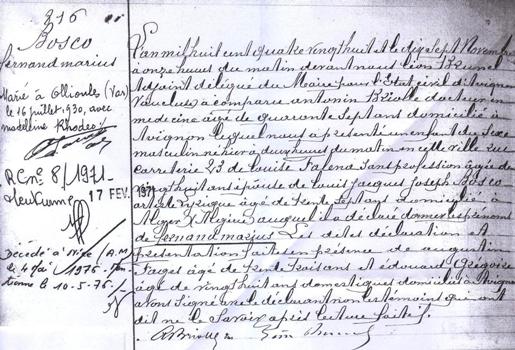 216
Bosco
fernand marius
Marié à Ollioules (Var)
le 16 juillet 1930, avec
madeleine Rhodes
RC nº 8/1971
17 FEV. 1971
Décédé à Nice (A.M.)
le 4 Mai 1976
le 10-5-76
L'an mil huit cent quatre vingt huit et le dix sept Novembre
à onze heures du matin devant nous Léon Brunel
Adjoint délégué du Maire pour l'Etat civil d'Avignon
Vaucluse a comparu antonin docteur en
medecine agé de quarante sept ans domicilié à
Avignon lequel nous a présenté un enfant du sexe
masculin né hier à deux heures du matin en cette ville rue
carreterie 23 de Louise Falena sans profession agée de
vingt huit ans épouse de Louis Jacques Joseph Bosco
artiste lyrique agé de trente sept ans domiciliés à
Alger Algérie auquel il a déclaré donner les prénoms
de fernand marius Les dites déclaration et
présentation faites en présence de augustin
Farget agé de trente trois ans et édouard Grégoire
agé de vingt huit ans domestiques domiciliés à Avignon
avons signé avec le déclarant non les témoins qui ont
dit ne le savoir après lecture faite